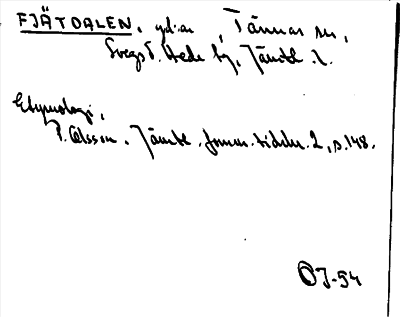 FJÄTDALEN, yd:an, Tännäs sn,
Svegs o. Hede tg, Jämtl. l.
Etymologi,
P. Olsson, Jämtl. fornm. tidskr. 2, s. 148.
OJ-54